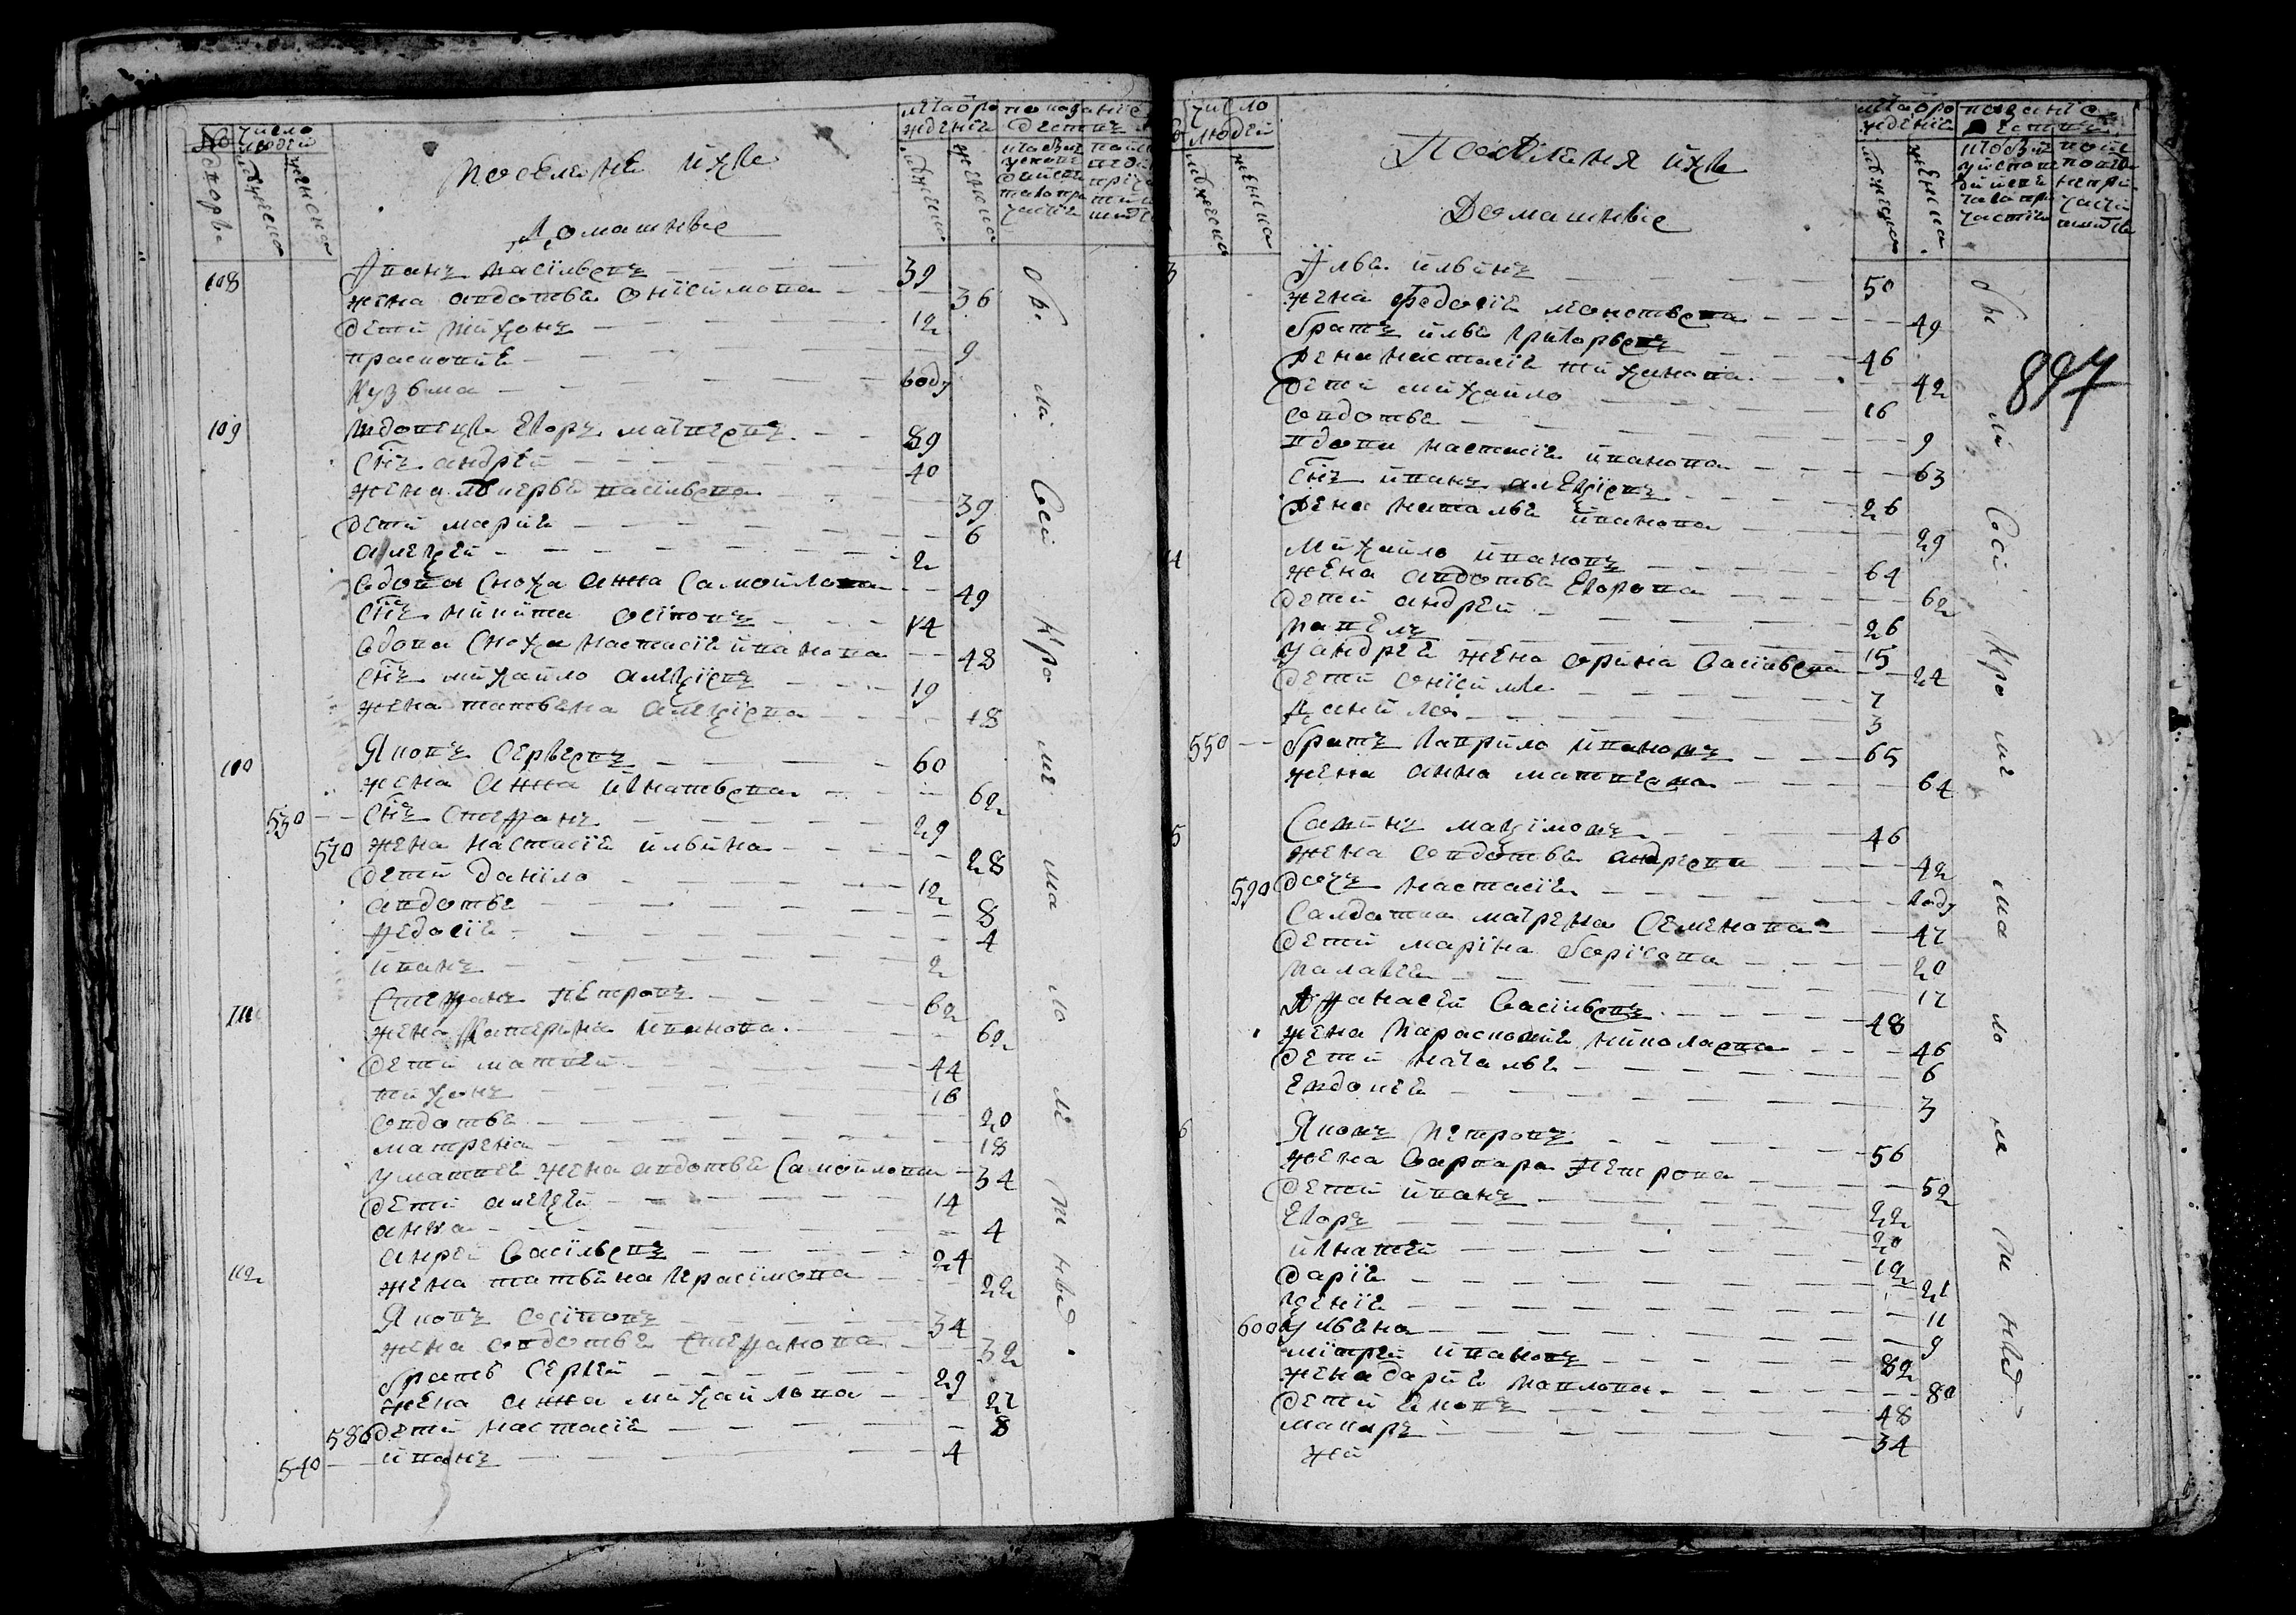 № дворовъ
число людей
мужеска
женска
поселяне ихъ
Домашные
лѣта о рождениі
мужеска
женска
108 Иванъ василъевъ 39
жена авдотья онісимова 36
дети тихонъ 12
прасковия 9
кузьма году
109 вдовецъ егоръ матвеевъ 89
снъ андрей 40
жена лукерья василъева 39
дети мария 6
алеѯей 2
вдова сноха анна самойлова 49
снъ никита осіповъ 14
вдова сноха настасія иванова 48
снъ михайло алеѯіевъ 19
жена татьяна алеѯіева 18
110 Яковъ сергеевъ 60
жена анна игнатьева 62
530 снъ степанъ 29
570 жена настасія ильина 28
дети даніло 12
авдотья 8
федосія 4
иванъ 2
111 Степанъ петровъ 62
жена катерина иванова 60
дети матвей 44
тихонъ 16
овдотья 20
матрена 18
у матвея жена авдотья самойлова 34
дети алеѯей 14
анна 4
112 анрей васілъевъ 24
жена татьяна герасімова 22
Яковъ осіповъ 34
жена овдотья степанова 32
братъ сергей 29
жена анна михайлова 27
580 дети настасія 8
540 иванъ 4
обыли всі кроме малолетныхъ
число людей
мужеска
женска
Поселяня ихъ
Домашные
лѣта о рождениі
мужеска
женска
897
3 Илья ильинъ 50
жена федосія леонтьева 49
братъ илья григорьевъ 46
жена настасія тихонова 42
дети михайло 16
овдотья 9
вдова настасія иванова 63
снъ иванъ алеѯіевъ 26
жена наталья иванова 29
4 Михайло ивановъ 64
жена авдотья егорова 62
дети андрей 26
павелъ 15
у андрея жена орина васілъева 24
дети онісимъ 7
данило 3
550 братъ гаврило ивановъ 65
жена анна матвеева 64
5 Савинъ маѯімовъ 46
жена овдотья андреева 42
590 дочъ настасія году
салдатка матрена семенова 47
дети маріна борісова 20
палагея 17
Афанасей васілъевъ 48
жена парасковия николаева 46
дети наталья 6
евдокея 3
6 Яковъ петровъ 56
жена варвара петрова 52
дети иванъ 22
егоръ 20
игнатей 12
дарія 21
ѯенія 11
600 ульяна 9
мітрей ивановъ 82
жена дария павлова 80
дети яковъ 48
макаръ 34
же
обыли всі кроме малолетныхъ